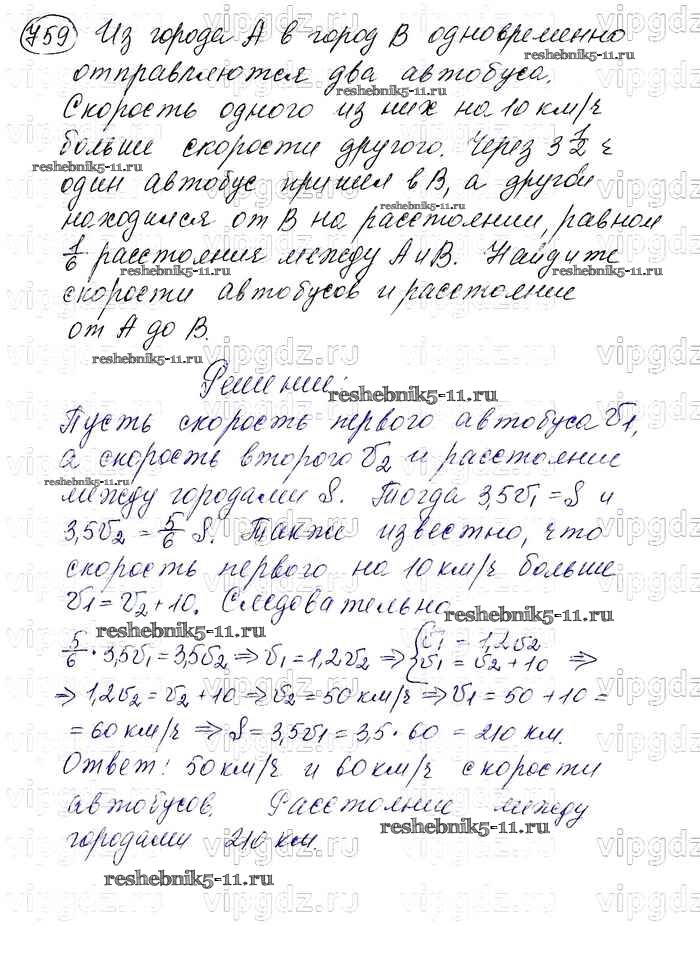 759 Из города А в город В одновременно
отправляются два автобуса.
Скорость одного из них на 10 км/ч
больше скорости другого. Через 3 1/2 ч
один автобус пришел в В, а другой
находился от В на расстоянии, равном
1/6 расстояния между А и В. Найдите
скорости автобусов и расстояние
от А до В.
Решение:
Пусть скорость первого автобуса v1,
а скорость второго v2 и расстояние
между городами S. Тогда 3,5v1 = S и
3,5v2 = 5/6 S. Также известно, что
скорость первого на 10 км/ч больше
v1 = v2 + 10. Следовательно
5/6 · 3,5v1 = 3,5v2 ⇒ v1 = 1,2v2 ⇒ { v1 = 1,2v2 v1 = v2 + 10 ⇒
⇒ 1,2v2 = v2 + 10 ⇒ v2 = 50 км/ч ⇒ v1 = 50 + 10 =
= 60 км/ч ⇒ S = 3,5v1 = 3,5 * 60 = 210 км.
Ответ: 50 км/ч и 60 км/ч скорости
автобусов. Расстояние между
городами 210 км.
reshebnik5-11.ru
vipgdz.ru